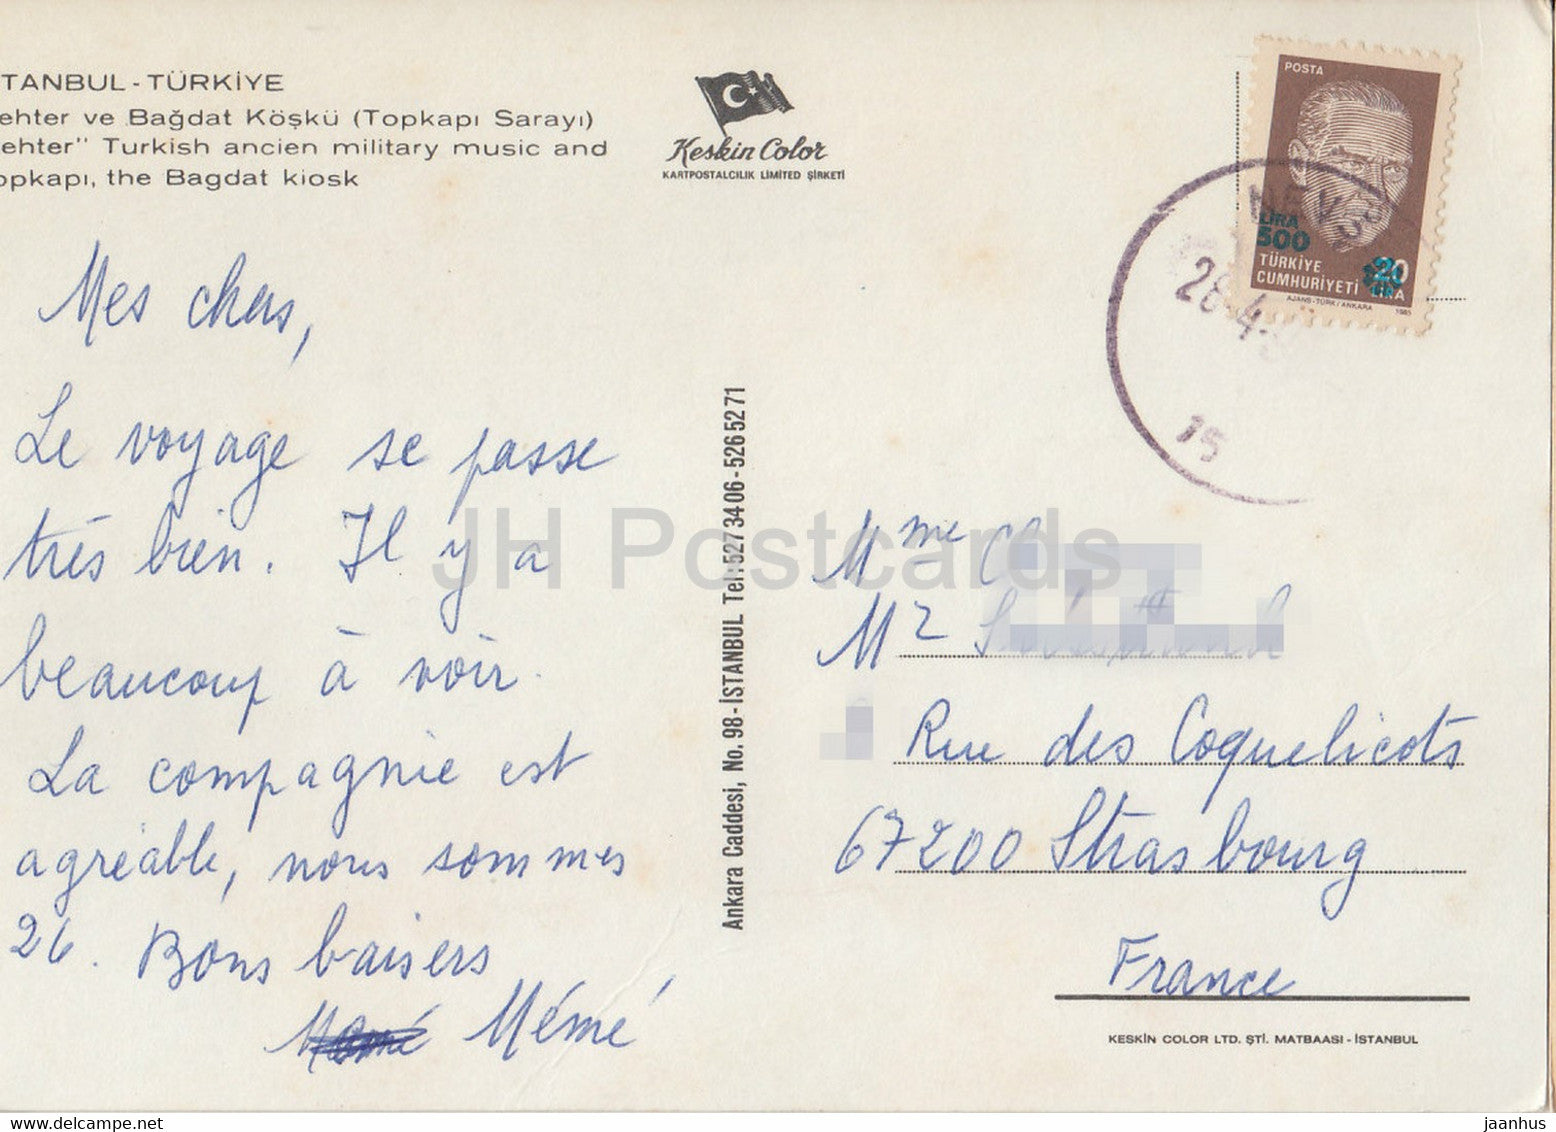 TANBUL - TÜRKİYE
ehter ve Bağdat Köşkü (Topkapı Sarayı)
ehter" Turkish ancien military music and
opkapı, the Bagdat kiosk
Keskin Color
KARTPOSTALCILIK LIMITED ŞİRKETİ
POSTA
LİRA
500
TÜRKİYE
CUMHURİYETİ
20
LİRA
AJANS-TÜRK / ANKARA 1985
NEVŞ
15
Mes chers,
Le voyage se passe
très bien. Il y a
beaucoup à voir.
La compagnie est
agréable, nous sommes
26. Bons baisers
Mémé
Ankara Caddesi, No. 98 - İSTANBUL Tel: 527 34 06 - 526 52 71
Mme
Mr
Rue des Coquelicots
67200 Strasbourg
France
KESKİN COLOR LTD. ŞTİ. MATBAASI - İSTANBUL
JH Postcards
jaanhus